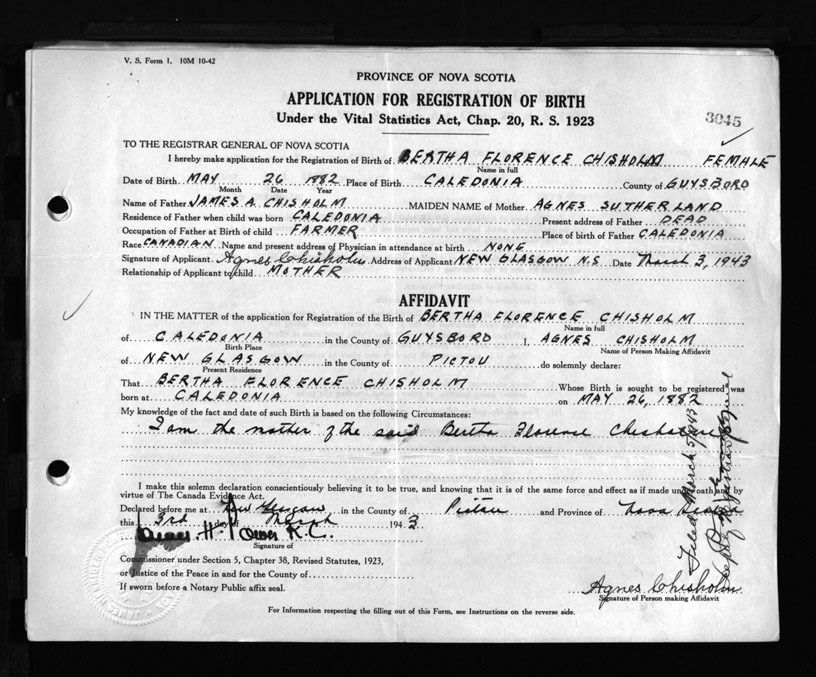 V. S. Form 1. 10M 10-42
PROVINCE OF NOVA SCOTIA
APPLICATION FOR REGISTRATION OF BIRTH
Under the Vital Statistics Act, Chap. 20, R. S. 1923
3045
TO THE REGISTRAR GENERAL OF NOVA SCOTIA
I hereby make application for the Registration of Birth of BERTHA FLORENCE CHISHOLM FEMALE
Name in full
Date of Birth MAY 26 1882 Place of Birth CALEDONIA County of GUYSBORO
Month Date Year
Name of Father JAMES A. CHISHOLM MAIDEN NAME of Mother AGNES SUTHERLAND
Residence of Father when child was born CALEDONIA Present address of Father DEAD
Occupation of Father at Birth of child FARMER Place of birth of Father CALEDONIA
Race CANADIAN Name and present address of Physician in attendance at birth NONE
Signature of Applicant Agnes Chisholm Address of Applicant NEW GLASGOW N.S. Date March 3, 1943
Relationship of Applicant to child MOTHER
AFFIDAVIT
IN THE MATTER of the application for Registration of the Birth of BERTHA FLORENCE CHISHOLM
Name in full
of CALEDONIA in the County of GUYSBORO I, AGNES CHISHOLM
Birth Place Name of Person Making Affidavit
of NEW GLASGOW in the County of PICTOU do solemnly declare:
Present Residence
That BERTHA FLORENCE CHISHOLM Whose Birth is sought to be registered was
born at CALEDONIA on MAY 26, 1882
My knowledge of the fact and date of such Birth is based on the following Circumstances:
I am the mother of the said Bertha Florence Chisholm
I make this solemn declaration conscientiously believing it to be true, and knowing that it is of the same force and effect as if made under oath and by
virtue of The Canada Evidence Act.
Declared before me at New Glasgow in the County of Pictou and Province of Nova Scotia
this 3rd day of March 1943
H. K.C.
Signature of
Commissioner under Section 5, Chapter 38, Revised Statutes, 1923,
or Justice of the Peace in and for the County of
If sworn before a Notary Public affix seal.
Agnes Chisholm
Signature of Person making Affidavit
For Information respecting the filling out of this Form, see Instructions on the reverse side.
Filed March 5/1943